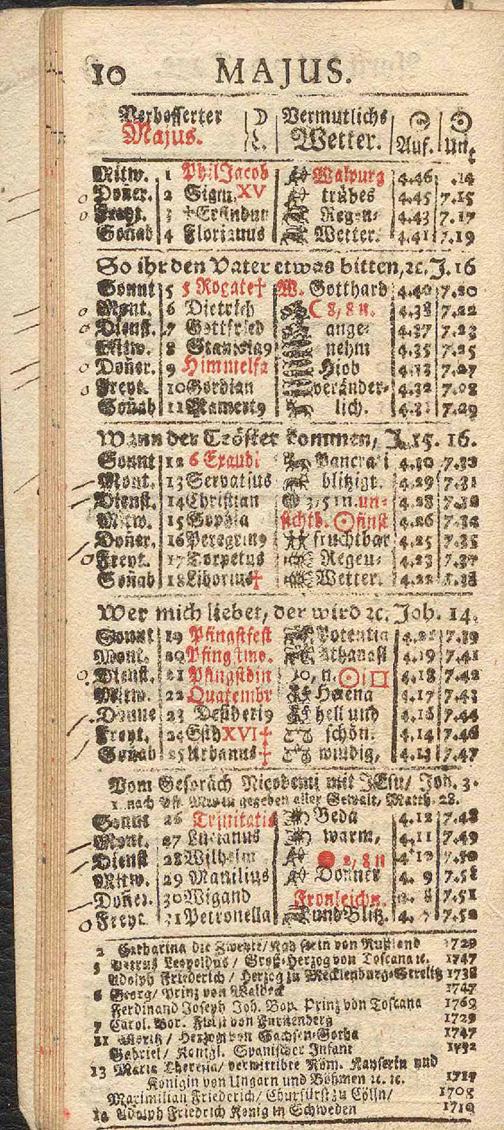 10 MAJUS.
Verbesserter Vermutlichs
Majus. Wetter. Auf. Unt.
Mitw. 1 Phil Jacob Walpurg 4.46 .14
Doñer. 2 Sigm. XV trübes 4.45 7.15
Freyt. 3 Regen- 4.43 7.17
Soñab 4 Florianus Wetter. 4.41 7.19
So ihr den Vater etwas bitten, ꝛc. J. 16
Sonnt 5 5 Rogate† W. Gotthard 4.40 7.20
Mont. 6 Dietrich ☾ 8, 8 n. 4.38 7.22
Dienst. 7 Gottfried ange- 4.37 7.23
Mitw. 8 Stanislag nehm 4.35 7.25
Doñer. 9 Himmelfa Hiob 4.33
Freyt. 10 Gordian veränder- 4.32
Soñab 11 Mamert9 lich. 4.31 7.29
Wann der Tröster kommen, J. 15. 16.
Sonnt 12 6 Exaudi Pancra i 4.30 7.30
Mont. 13 Servatius blitzigt. 4.29 7.31
Dienst. 14 Christian 3, 51 n. un- 4.28 7.32
Mitw. 15 Sophia sichtb. ☉ finst 4.26 7.34
Doñer. 16 Peregrin9 fruchtbar 4.25 7.35
Freyt. 17 Torpetus Regen- 4.23 7.37
Soñab 18 Liborius† Wetter. 4.22 7.38
Wer mich liebet, der wird ꝛc. Joh. 14.
Sonnt 19 Pfingstfest Potentia 4.21 7.39
Mont. 20 Pfingstmo. Athanasi 4.19 7.41
Dienst. 21 Pfingstdin 10, n. ☉ □ 4.18 7.42
Mitw. 22 Quatembr Helena 4.17 7.43
Donne 23 Desideri9 hell und 4.16 7.44
Freyt. 24 Esth XVI† schön. 4.14 7.46
Soñab 25 Urbanus‡ windig, 4.13 7.47
Vom Gespräch Nicodemi mit JEsu/ Joh. 3.
1. nach Pf. Mir ist gegeben aller Gewalt, Matth. 28.
Sonnt 26 Trinitatis Beda 4.12 7.48
Mont. 27 Lucianus warm, 4.11 7.49
Dienst 28 Wilhelm ● 2, 8 n 4.10 7.50
Mitw. 29 Manilius Donner 4. 9 7.51
Doñer. 30 Wigand Fronleichn. 8 7.51
Freyt. 31 Petronella und Blitz. 4. 7 7.52
2 Catharina die Zweyte/ Kayserin von Rußland 1729
5 Petrus Leopoldus/ Groß-Herzog von Toscana ꝛc. 1747
Adolph Friederich/ Herzog zu Mecklenburg-Strelitz 1738
6 Georg/ Prinz von Waldeck 1747
Ferdinand Joseph Joh. Bap. Prinz von Toscana 1769
7 Carol. Bor. Fürst von Fürstenberg 1729
11 Moritz/ Herzog von Sachsen-Gotha 1747
Gabriel/ Königl. Spanischer Infant 1752
13 Maria Theresia/ verwittibte Röm. Kayserin und
Königin von Ungarn und Böhmen ꝛc. ꝛc. 1717
Maximilian Friederich/ Churfürst zu Cölln/ 1708
14 Adolph Friedrich König in Schweden 1710